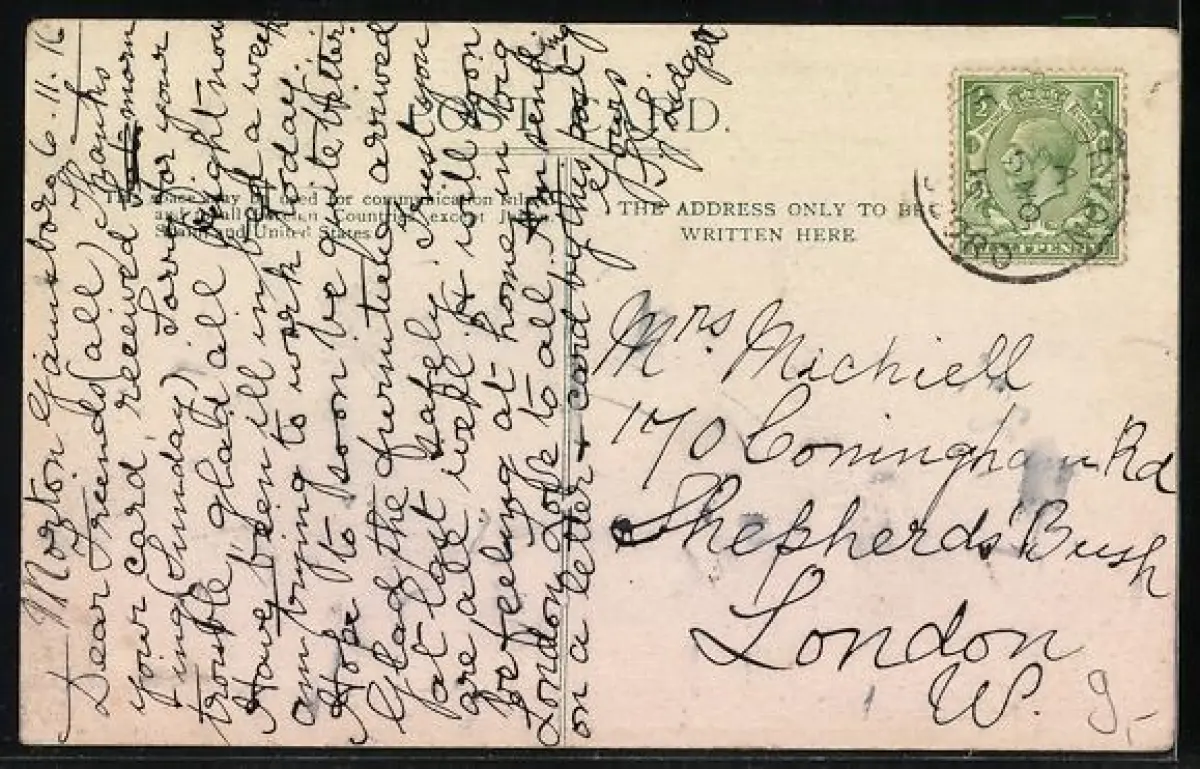 Morton Gainsboro 6.11.16
Dear Friends (all) Thanks
your card, received at morn
-ing (Sunday) Sorry for your
trouble, ghald all right now
Have been ill in bed a week
am trying to work today.
Hope to soon be quite better
Glad the furniture arrived
at last safely. Trust you
are all well & will soon
be feeling at home in big
London. Love to all. Am sending
on a letter & card by this post
Yours
POST CARD.
This space may be used for communication Inland
and to all Foreign Countries except Japan
Spain and United States.
THE ADDRESS ONLY TO BE
WRITTEN HERE.
HALFPENNY
Mrs Michiell
170 Coningham Rd
Shepherds' Bush
London
W.
9.-